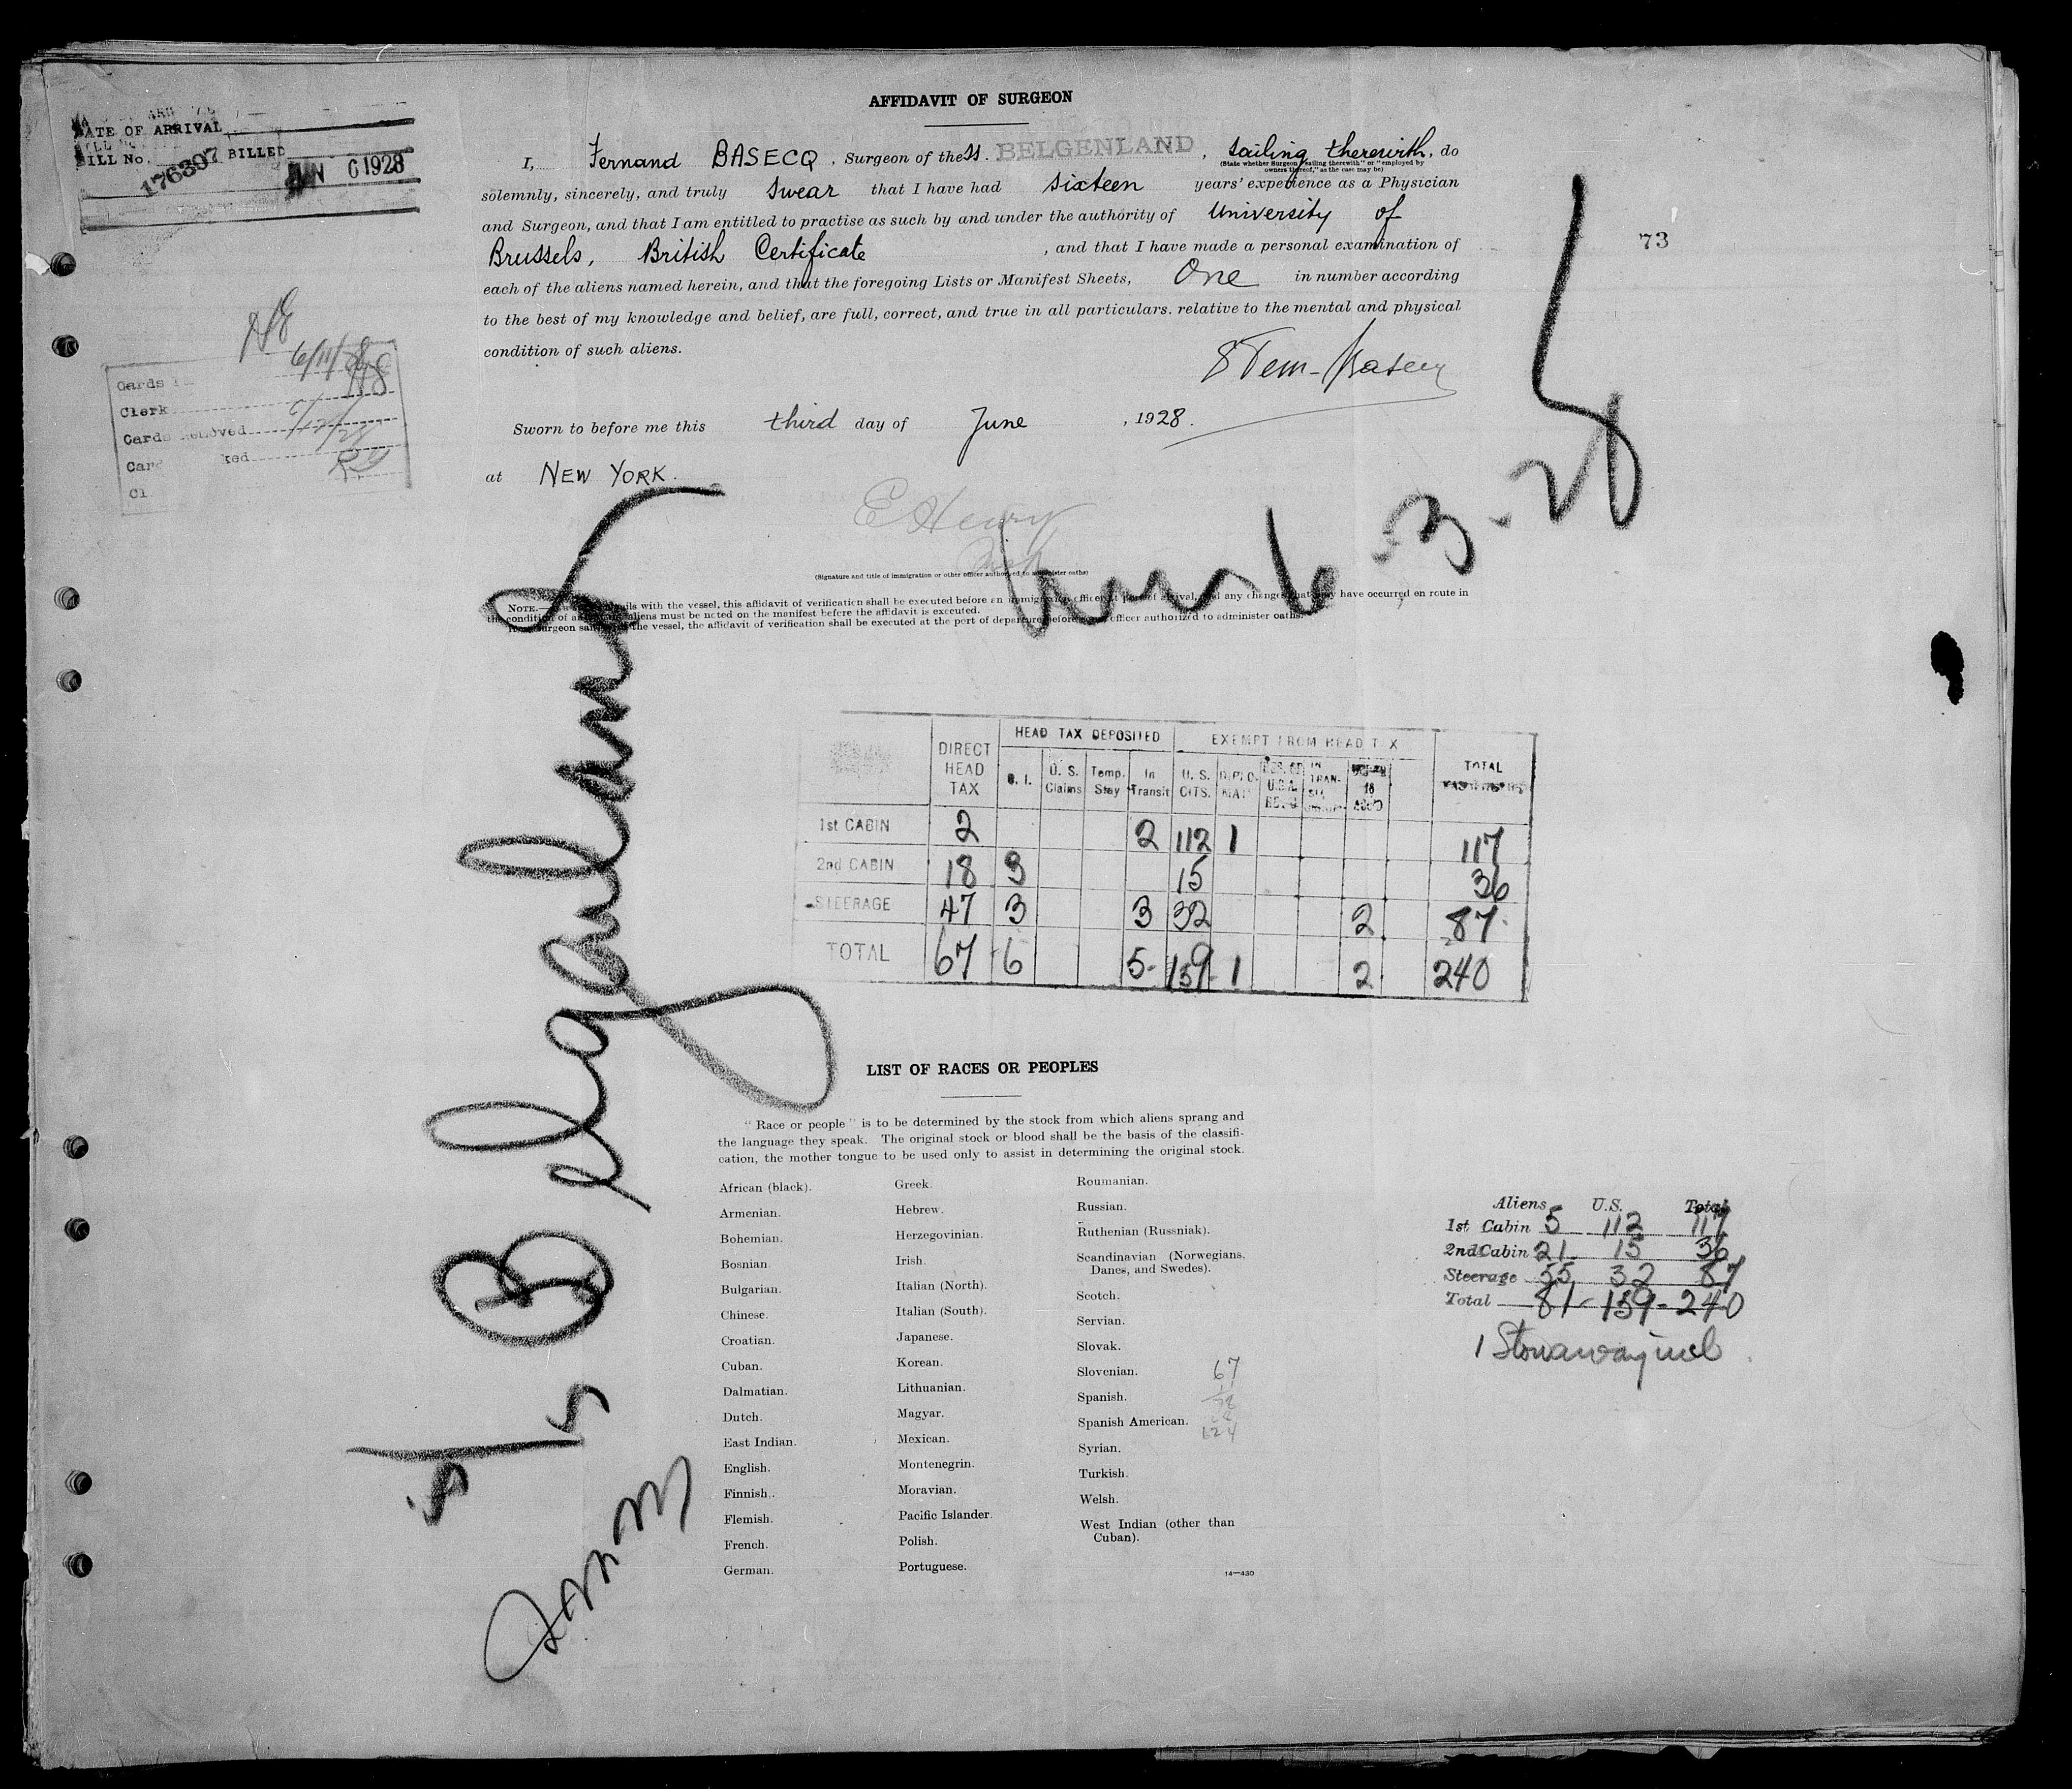 AFFIDAVIT OF SURGEON
DATE OF ARRIVAL
BILL No. 176307 BILLED JUN 6 1928
I, Fernand BASECQ, Surgeon of the SS. BELGENLAND, sailing therewith, do
(State whether Surgeon "sailing therewith" or "employed by
owners thereof," as the case may be)
solemnly, sincerely, and truly swear that I have had sixteen years' experience as a Physician
and Surgeon, and that I am entitled to practise as such by and under the authority of University of
Brussels, British Certificate, and that I have made a personal examination of
73
each of the aliens named herein, and that the foregoing Lists or Manifest Sheets, One in number according
to the best of my knowledge and belief, are full, correct, and true in all particulars. relative to the mental and physical
condition of such aliens.
6/11/28
Cards
Clerk
Cards removed
Card ked
Cl
Sworn to before me this third day of June, 1928.
at NEW YORK.
E Henry
(Signature and title of immigration or other officer authorized to administer oaths)
6-3-28
NOTE.— with the vessel, this affidavit of verification shall be executed before an immigration officer at port of arrival, and any changes that may have occurred en route in
the condition of aliens must be noted on the manifest before the affidavit is executed.
surgeon the vessel, the affidavit of verification shall be executed at the port of departure before officer authorized to administer oaths.
Belgenland
DIRECT HEAD TAX HEAD TAX DEPOSITED EXEMPT FROM HEAD TAX TOTAL
S. I. U. S. Claims Temp. Stay In Transit U. S. CITS. DIPLO. MAT U.S.A. IN TRAN- SIT 16
1st CABIN 2 2 112 1 117
2nd CABIN 18 3 15 36
STEERAGE 47 3 3 32 2 87
TOTAL 67 6 5 159 1 2 240
LIST OF RACES OR PEOPLES
"Race or people" is to be determined by the stock from which aliens sprang and
the language they speak. The original stock or blood shall be the basis of the classifi-
cation, the mother tongue to be used only to assist in determining the original stock.
African (black).
Armenian.
Bohemian.
Bosnian
Bulgarian.
Chinese.
Croatian.
Cuban.
Dalmatian.
Dutch.
East Indian.
English.
Finnish.
Flemish.
French.
German.
Greek.
Hebrew.
Herzegovinian.
Irish.
Italian (North).
Italian (South).
Japanese.
Korean.
Lithuanian.
Magyar.
Mexican.
Montenegrin.
Moravian.
Pacific Islander.
Polish.
Portuguese.
Roumanian.
Russian.
Ruthenian (Russniak).
Scandinavian (Norwegians,
Danes, and Swedes).
Scotch.
Servian.
Slovak.
Slovenian.
Spanish.
Spanish American.
Syrian.
Turkish.
Welsh.
West Indian (other than
Cuban).
67
124
14—430
Aliens U.S. Total
1st Cabin 5 112 117
2nd Cabin 21 15 36
Steerage 55 32 87
Total 81-159-240
1 Stowaway incl